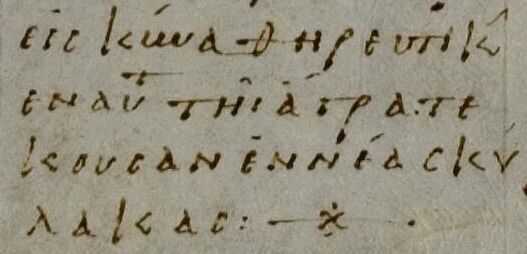 εις κύνα θηρευτικ
εν αυτ τῆι ἄγρα τε
κουσαν ἐννέα σκύ
λακας: